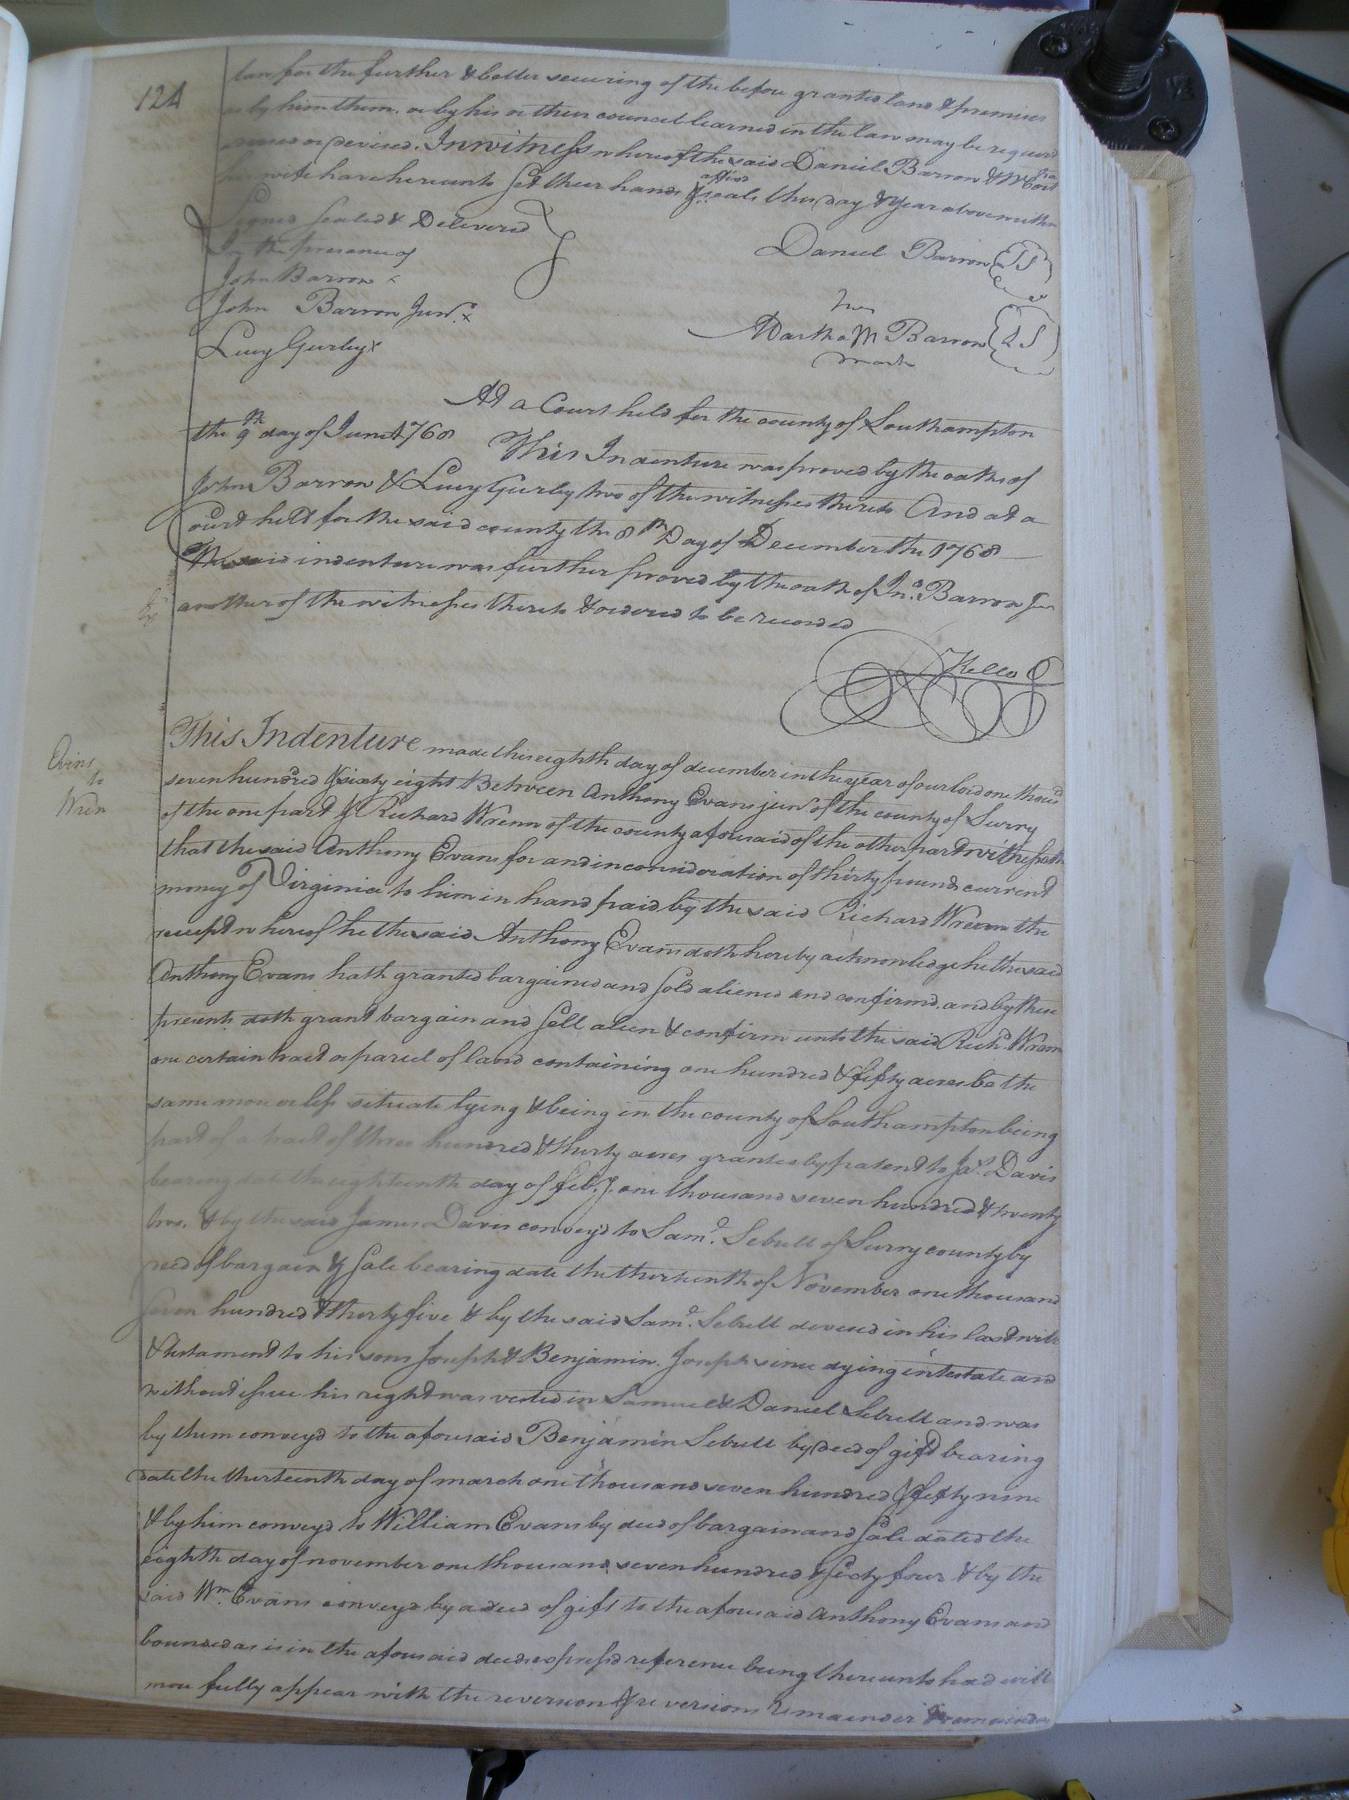 124
law for the further & better securing of the before granted land & premises
as by him them. or by his or their council learned in the law may be requir'd
devised. In witness whereof the said Daniel Barron & Martha
his wife have hereunto Set their hands & affixed seals the day & Year above
Signed Sealed & Delivered
In the presence of
Daniel Barron LS
John Barron x
John Barron Junr. x
her
Martha M Barron LS
mark
Lucy Gurley x
At a Court held for the county of Southampton
the 9th day of June 1768
This Indenture was proved by the oaths of
John Barron & Lucy Gurley two of the witnesses thereto And at a
Court held for the said county the 8th Day of December the 1768
The said indenture was further proved by the oath of Jno. Barron Jr
another of the witnesses thereto & ordered to be recorded
Kello
Evins
to
Wren
This Indenture made this eighth day of december in the year of our lord one thous'd
seven hundred & sixty eight Between Anthony Evans junr of the county of Surry
of the one part & Richard Wrenn of the county aforesaid of the other part witnesseth
that the said Anthony Evans for and in consideration of thirty pounds current
money of Virginia to him in hand paid by the said Richard Wrenn the
receipt whereof he the said Anthony Evans doth hereby acknowledge he the said
Anthony Evans hath granted bargained and sold aliened and confirmd, and by these
presents doth grant bargain and Sell alien & confirm unto the said Richd. Wrenn
one certain tract or parcel of land containing one hundred & fifty acres be the
same more or less situate lying & being in the county of Southampton being
part of a tract of three hundred & thirty acres granted by patend to Jas. Davis
bearing date the eighteenth day of feb.y. one thousand seven hundred & twenty
two. & by the said James Davis convey'd to Saml. Sebrell of Surry county by
deed of bargain & Sale bearing date the thirteenth of November one thousand
Seven hundred & thirty five & by the said Saml. Sebrell devised in his last will
& testament to his sons Joseph & Benjamin. Joseph since dying intestate and
without issue his right was vested in Samuel & Daniel Sebrell and was
by them convey'd to the aforesaid Benjamin Sebrell by deed of gift bearing
date the thirteenth day of march one thousand seven hundred & fifty nine
& by him convey'd to William Evans by deed of bargain and Sale dated the
eighth day of november one thousand seven hundred & Sixty four & by the
said Wm. Evans convey'd by a deed of gift to the aforesaid Anthony Evans and
bounded as is in the aforesaid deeds express'd reference being thereunto had will
more fully appear with the reversion & reversions remainder & remainders